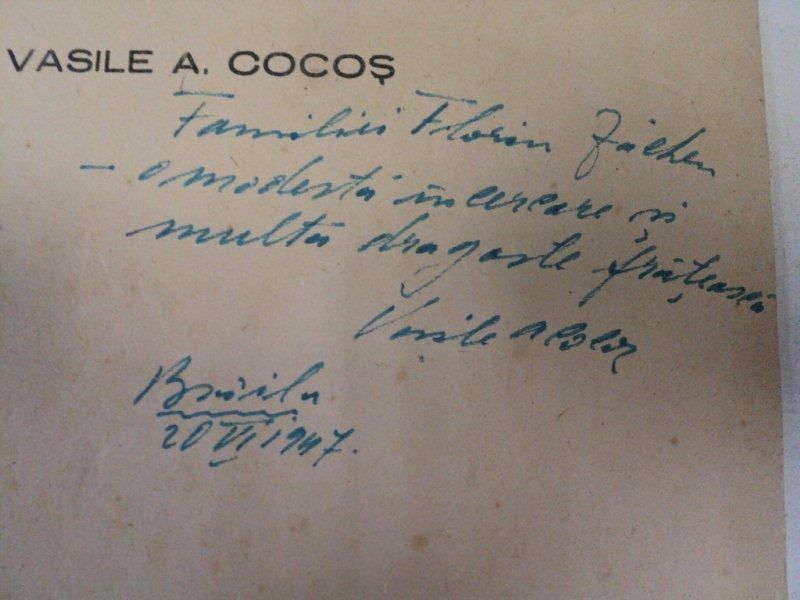 VASILE A. COCOȘ
Familiei Florin
– o modestă încercare și
multă dragoste frățească
Vasile A Cocoș
Brăila
20 VI 1947.